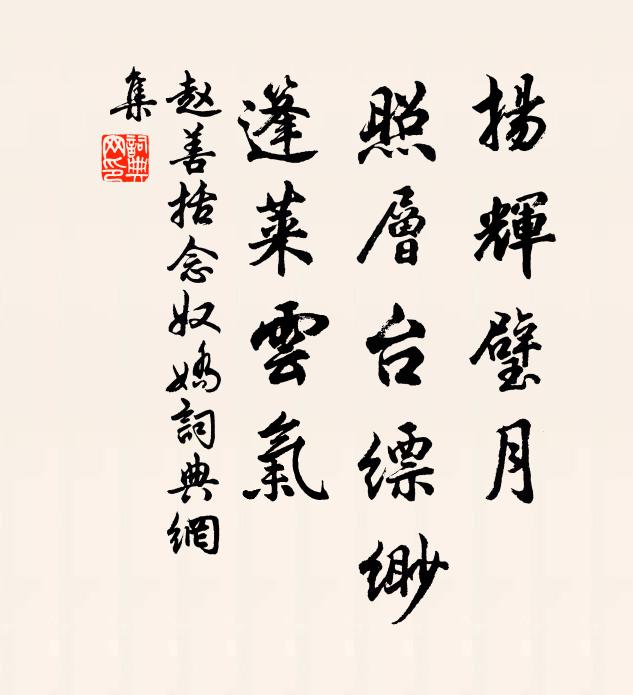 揚輝璧月
照層台縹緲
蓬萊雲氣
赵善括念奴嬌詞典網
集
詞典
网印